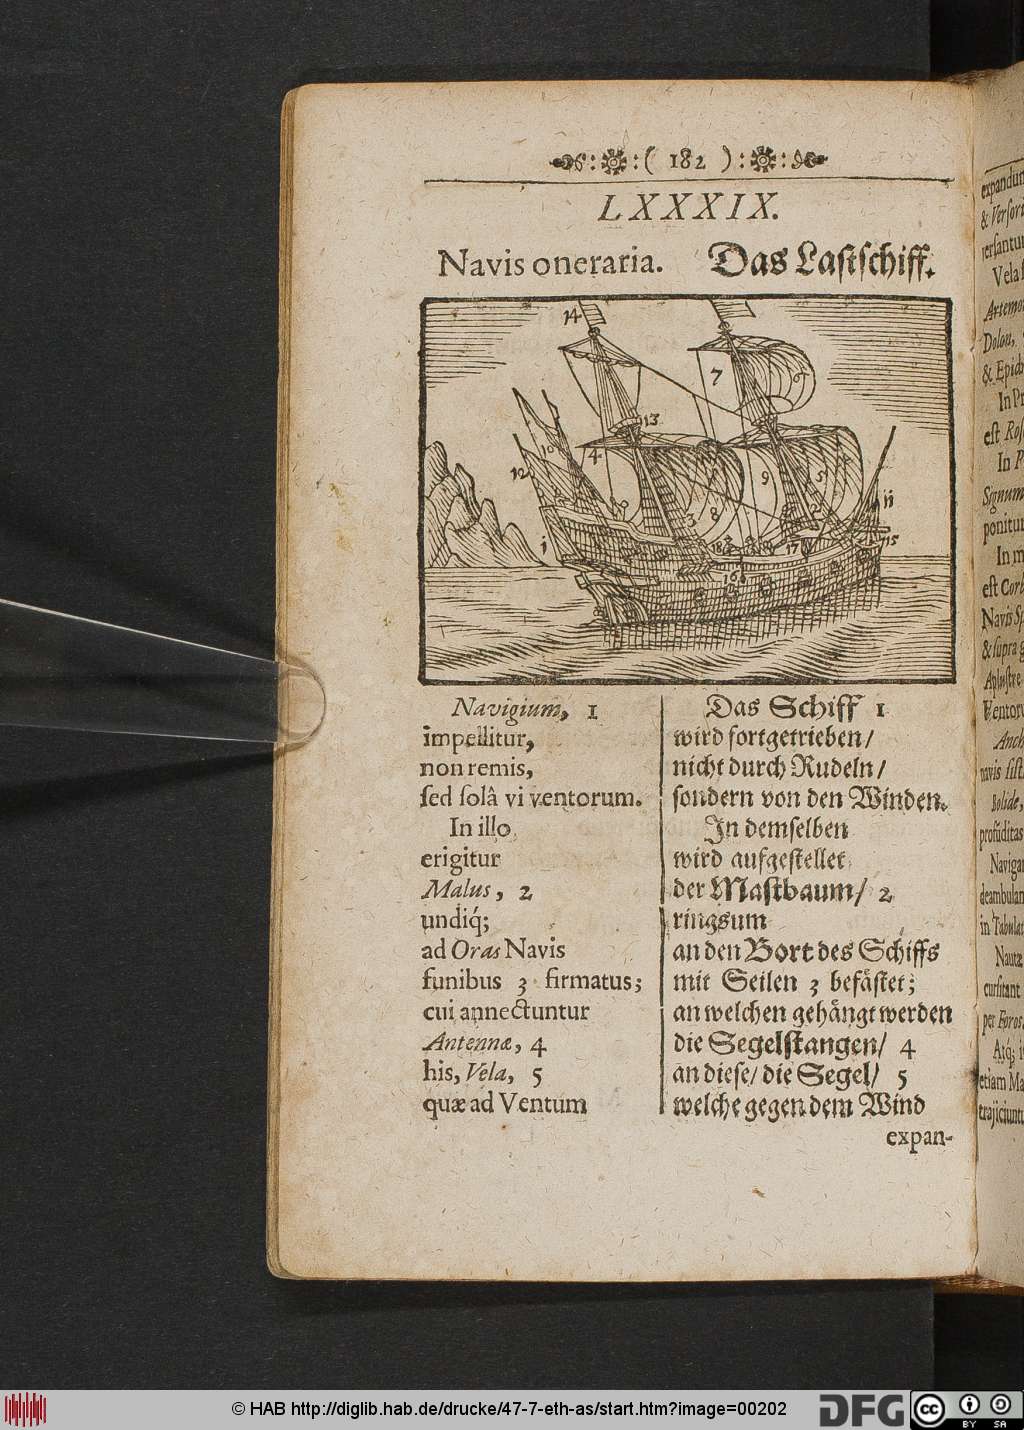 ( 182 )
LXXXIX.
Navis oneraria. Das Lastschiff.
14
7
6
13
4
10
12
9
5
3
8
ii
i
18
17
15
16
Navigium, 1
impellitur,
non remis,
sed solâ vi ventorum.
In illo
erigitur
Malus, 2
undiq́;
ad Oras Navis
funibus 3 firmatus;
cui annectuntur
Antennæ, 4
his, Vela, 5
quæ ad Ventum
Das Schiff 1
wird fortgetrieben/
nicht durch Rudeln/
sondern von den Winden.
In demselben
wird aufgestellet
der Mastbaum/ 2
ringsum
an den Bort des Schiffs
mit Seilen 3 befästet;
an welchen gehängt werden
die Segelstangen/ 4
an diese/ die Segel/ 5
welche gegen dem Wind
expan-
Vela
In
est
In
ponitur
In
est
Navis
& supra
Navigan
in Tabulat
Nautæ
cursitant
per
etiam
© HAB http://diglib.hab.de/drucke/47-7-eth-as/start.htm?image=00202
DFG
cc
BY SA